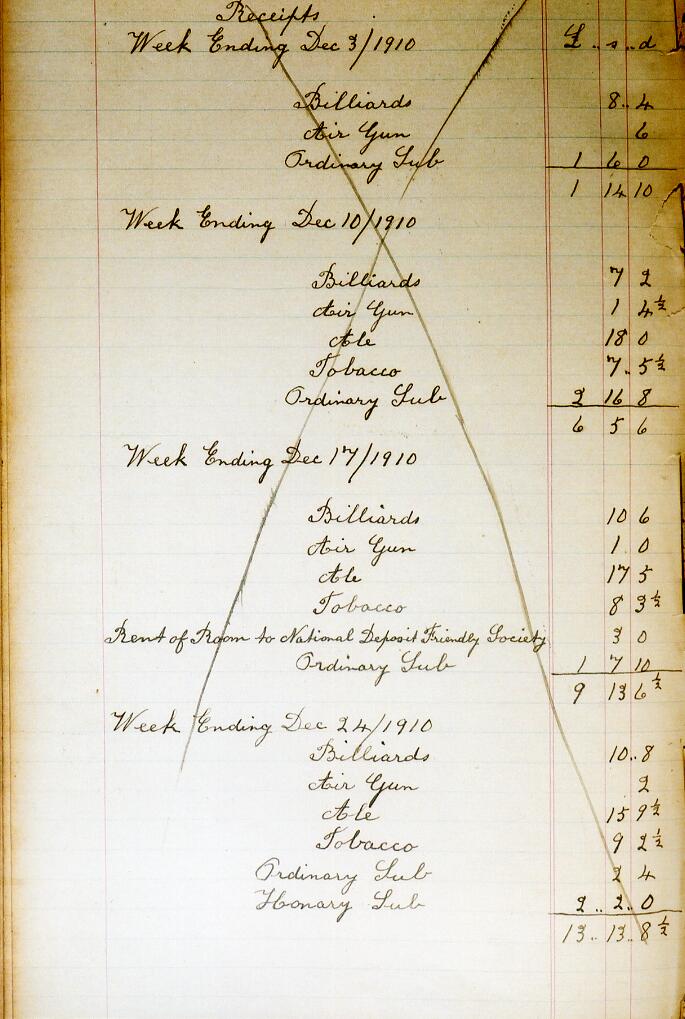 Receipts
Week Ending Dec 3/1910 £ .. s .. d
Billiards 8 .. 4
Air Gun 6
Ordinary Sub 1 6 0
1 14 10
Week Ending Dec 10/1910
Billiards 7 2
Air Gun 1 4½
Ale 18 0
Tobacco 7 .. 5½
Ordinary Sub 2 16 8
6 5 6
Week Ending Dec 17/1910
Billiards 10 6
Air Gun 1 0
Ale 17 5
Tobacco 8 3½
Rent of Room to National Deposit Friendly Society 3 0
Ordinary Sub 1 7 10
9 13 6½
Week Ending Dec 24/1910
Billiards 10 .. 8
Air Gun 2
Ale 15 9½
Tobacco 9 2½
Ordinary Sub 2 4
Honary Sub 2 .. 2 .. 0
13 .. 13 .. 8½